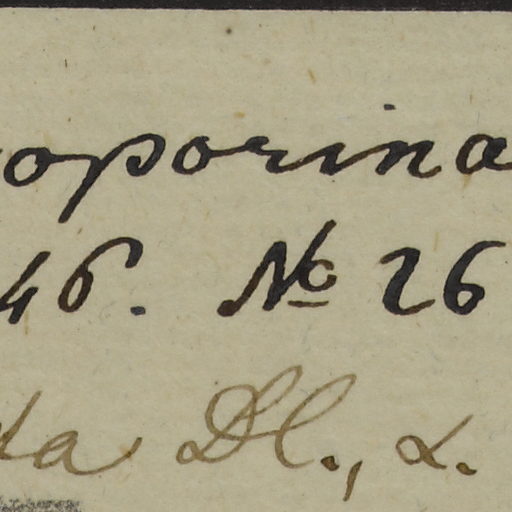 oporina
46. № 26
ta Dl., α.